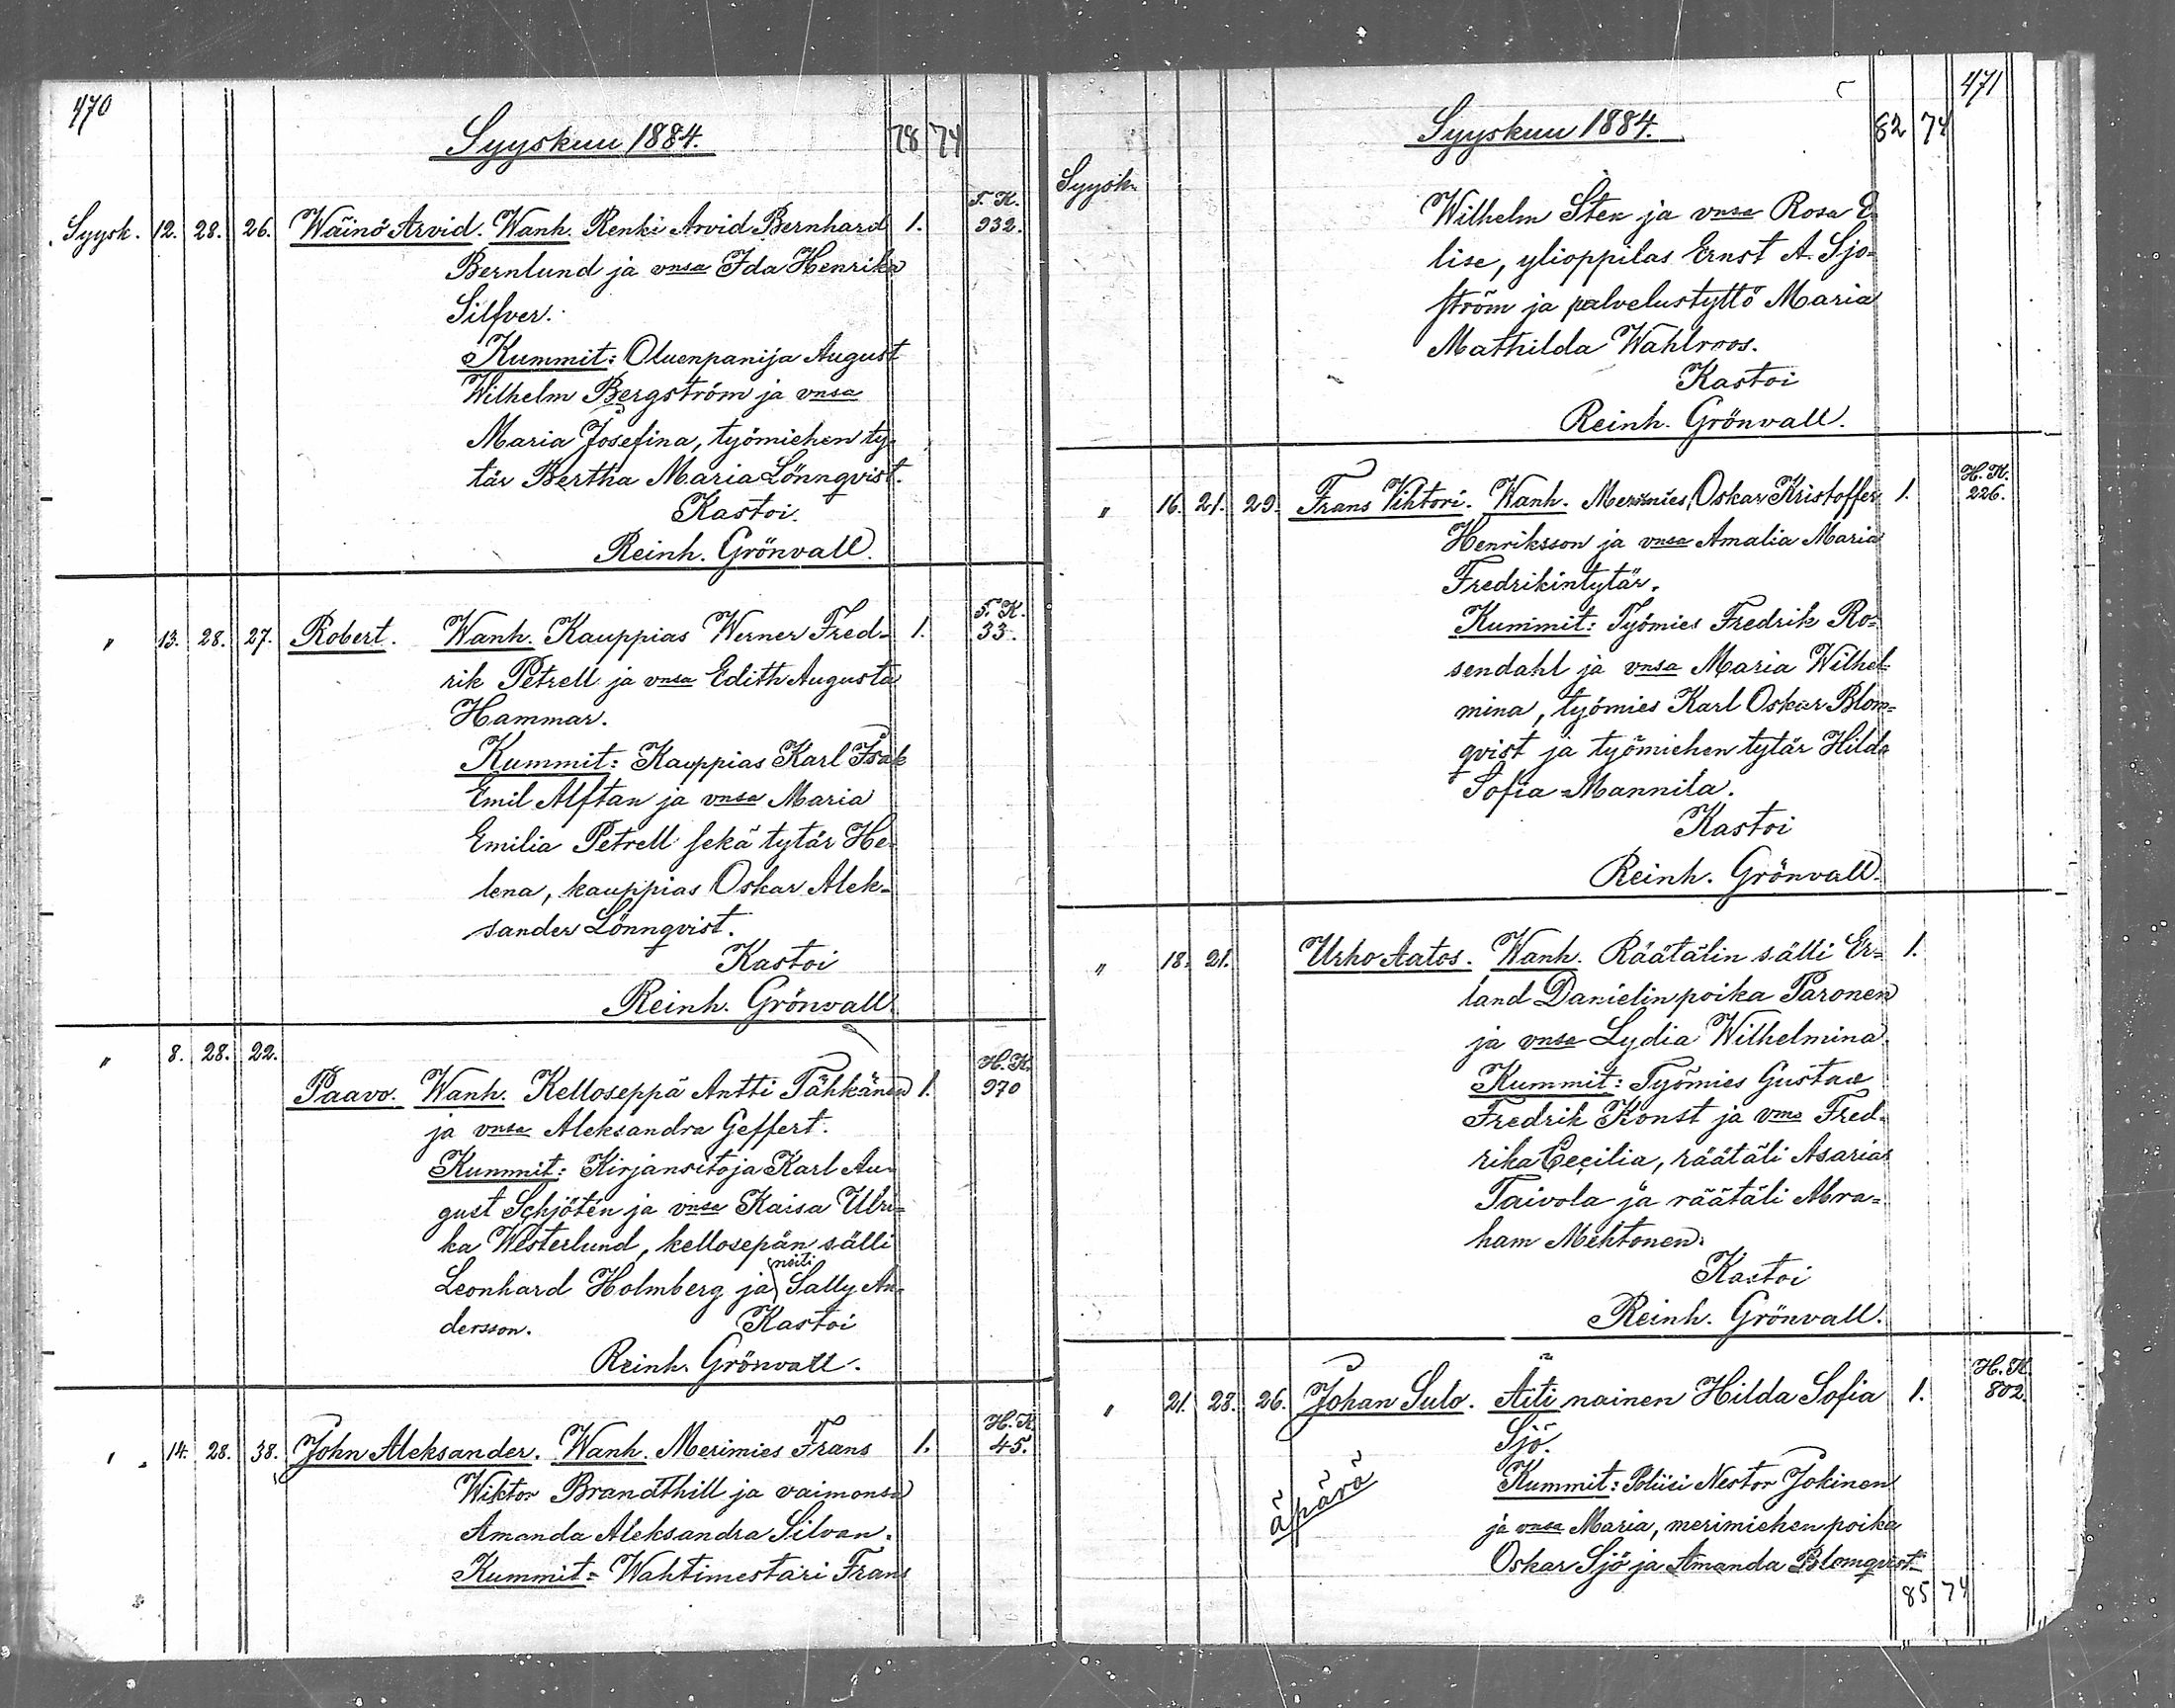 470
Syyskuu 1884.
78 74
Syysk. 12. 28. 26. Wäinö Arvid. Wanh. Renki Arvid Bernhard 1. T. K. 332.
Bernlund ja vnsa Ida Henrika
Silfver.
Kummit: Oluenpanija August
Wilhelm Bergström ja vnsa
Maria Josefina, työmiehen ty-
tär Bertha Maria Lönnqvist.
Kastoi.
Reinh. Grönvall.
" 13. 28. 27. Robert. Wanh. Kauppias Werner Fred- 1. T. K. 33.
rik Petrell ja vnsa Edith Augusta
Hammar.
Kummit: Kauppias Karl Isak
Emil Alftan ja vnsa Maria
Emilia Petrell sekä tytär He-
lena, kauppias Oskar Alek-
sander Lönnqvist.
Kastoi
Reinh. Grönvall.
" 8. 28. 22.
Paavo. Wanh. Kelloseppä Antti Tähkänen 1. H. K. 970
ja vnsa Aleksandra Geffert.
Kummit: Kirjansitoja Karl Au-
gust Schjötén ja vnsa Kaisa Ulri-
ka Westerlund, kellosepän sälli
Leonhard Holmberg ja neiti Sally An-
dersson. Kastoi
Reinh. Grönvall.
" 14. 28. 38. John Aleksander. Wanh. Merimies Frans 1. H. K. 45.
Wiktor Brandthill ja vaimonsa
Amanda Aleksandra Silvan.
Kummit: Wahtimestari Frans
471
Syyskuu 1884.
82 74
Syysk.
Wilhelm Sten ja vnsa Rosa E-
lise, ylioppilas Ernst A. Sjö-
ström ja palvelustyttö Maria
Mathilda Wahlroos.
Kastoi
Reinh. Grönvall.
" 16. 21. 29. Frans Vihtori. Wanh. Merimies, Oskar Kristoffer 1. H. K. 226.
Henriksson ja vnsa Amalia Maria
Fredrikintytär.
Kummit: Työmies Fredrik Ro-
sendahl ja vnsa Maria Wilhel-
mina, työmies Karl Oskar Blom-
qvist ja työmiehen tytär Hilda
Sofia Mannila.
Kastoi
Reinh. Grönvall.
" 18. 21. Urho Aatos. Wanh. Räätälin sälli Er- 1.
land Danielinpoika Paronen
ja vnsa Lydia Wilhelmina.
Kummit: Työmies Gustav
Fredrik Konst ja vms Fred-
rika Cecilia, räätäli Asarias
Taivola ja räätäli Abra-
ham Mehtonen.
Kastoi
Reinh. Grönvall.
" 21. 28. 26. Johan Sulo. Äiti nainen Hilda Sofia 1. H. K. 802.
Sjö.
äpärä
Kummit: Poliisi Nestor Jokinen
ja vnsa Maria, merimiehen poika
Oskar Sjö ja Amanda Blomqvist
85 74